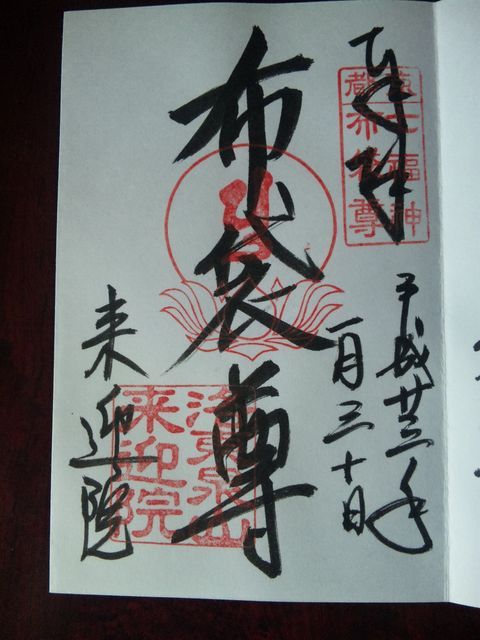 奉拝
平成廿三年
一月三十日
布袋尊
来迎院
京都七福神
布袋尊
洛東泉山
来迎院